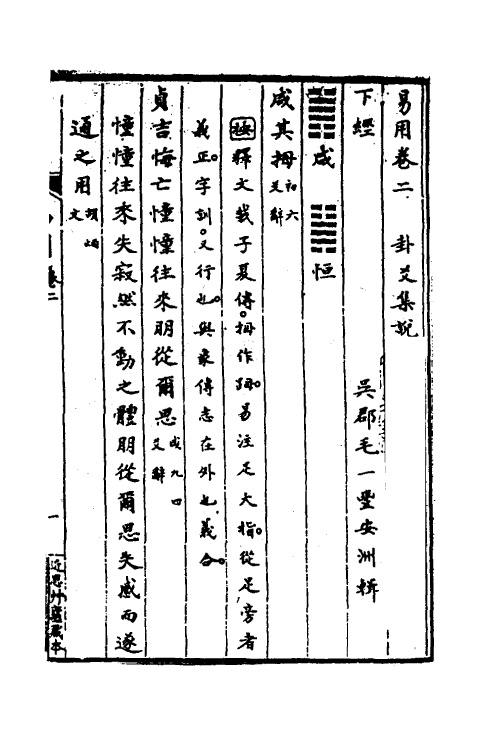 易用卷二　卦爻集說
下經　吳郡毛一豐安洲輯
䷞咸　䷟恒
咸其拇初六爻辭
按釋文載子夏傳。拇作𧿹。易注足大指。從足。旁者
義正。字訓。又行也。與彖傳志在外也。義合。
貞吉悔亡憧憧往來朋從爾思咸九四爻辭
憧憧往來失寂然不動之體朋從爾思失感而遂
通之用胡炳文
卷二
一
近思艸廬藏本